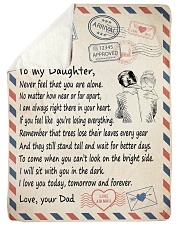 ARRIVAL
12345
APPROVED
To my Daughter,
Never feel that you are alone.
No matter how near or far apart,
I am always right there in your heart.
If you feel like you're losing everything.
Remember that trees lose their leaves every year
And they still stand tall and wait for better days.
To come when you can't look on the bright side.
I will sit with you in the dark.
I love you today, tomorrow and forever.
Love, your Dad